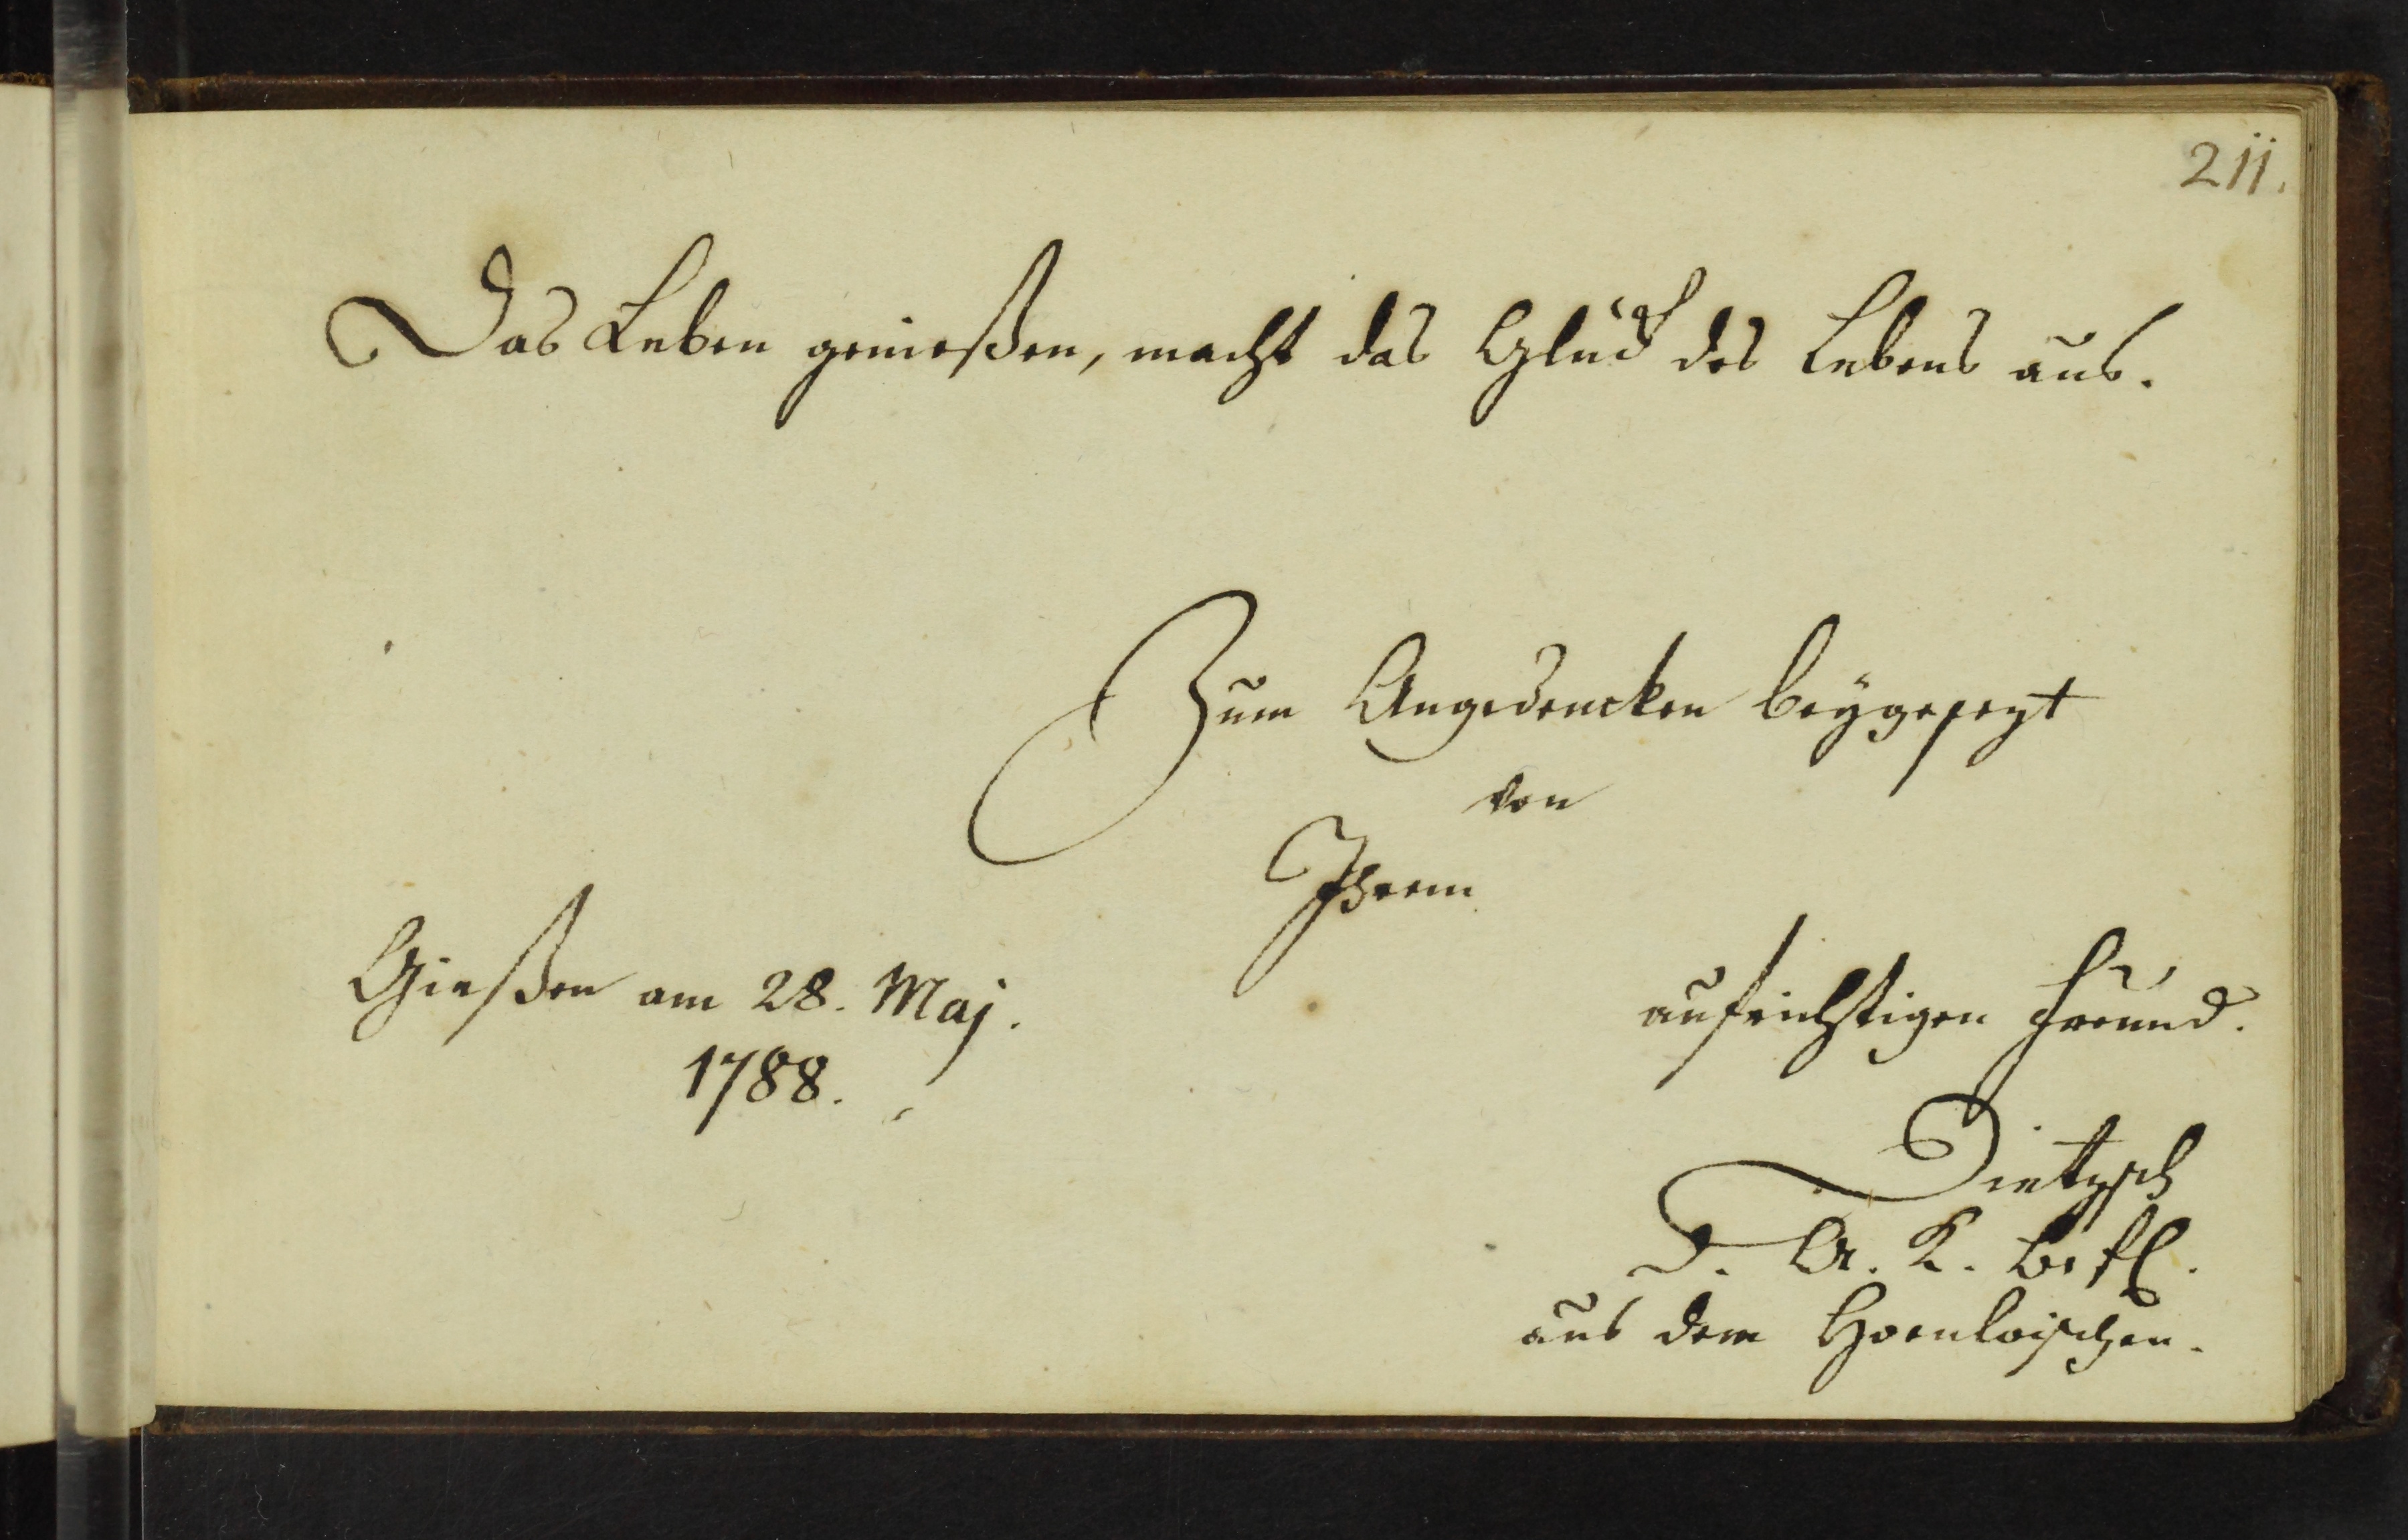 211.
Das Leben genießen, macht das Glück des Lebens aus.
Zum Angedencken beygesezt
von
Ihrem
aufrichtigen Freund.
Gießen am 28. Maj.
1788.
Dietzsch
D. G. K. befl.
aus dem Hoenloischen.